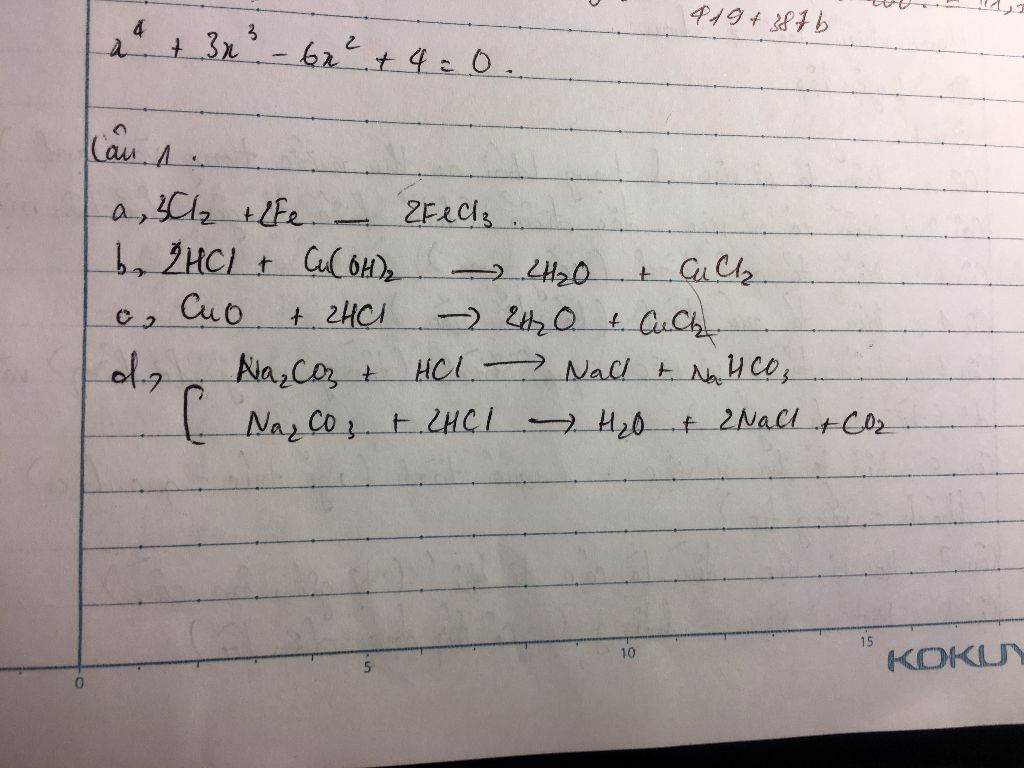 419 + 387b
x⁴ + 3x³ - 6x² + 4 = 0.
Câu 1.
a, 3Cl₂ + 2Fe — 2FeCl₃.
b, 2HCl + Cu(OH)₂ → 2H₂O + CuCl₂
c, CuO + 2HCl → 2H₂O + CuCl₂
d, Na₂CO₃ + HCl → NaCl + NaHCO₃
[ Na₂CO₃ + 2HCl → H₂O + 2NaCl + CO₂
0 5 10 15 KOKUY